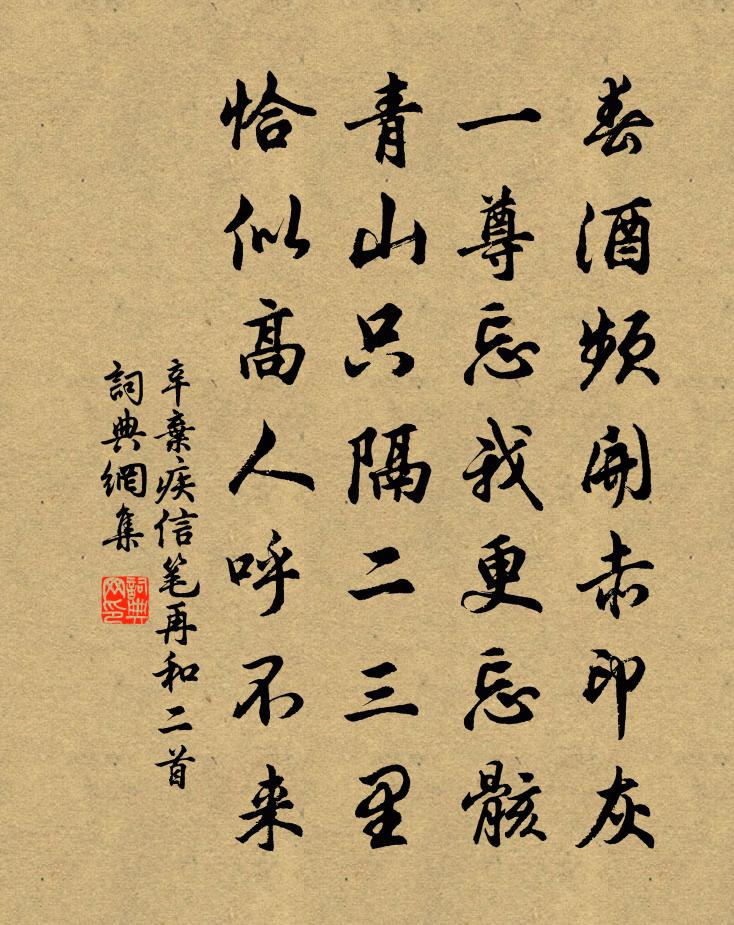 春酒频開赤印灰
一尊忘我更忘骸
青山只隔二三里
恰似高人呼不来
辛棄疾信笔再和二首
詞典網集
詞典网印